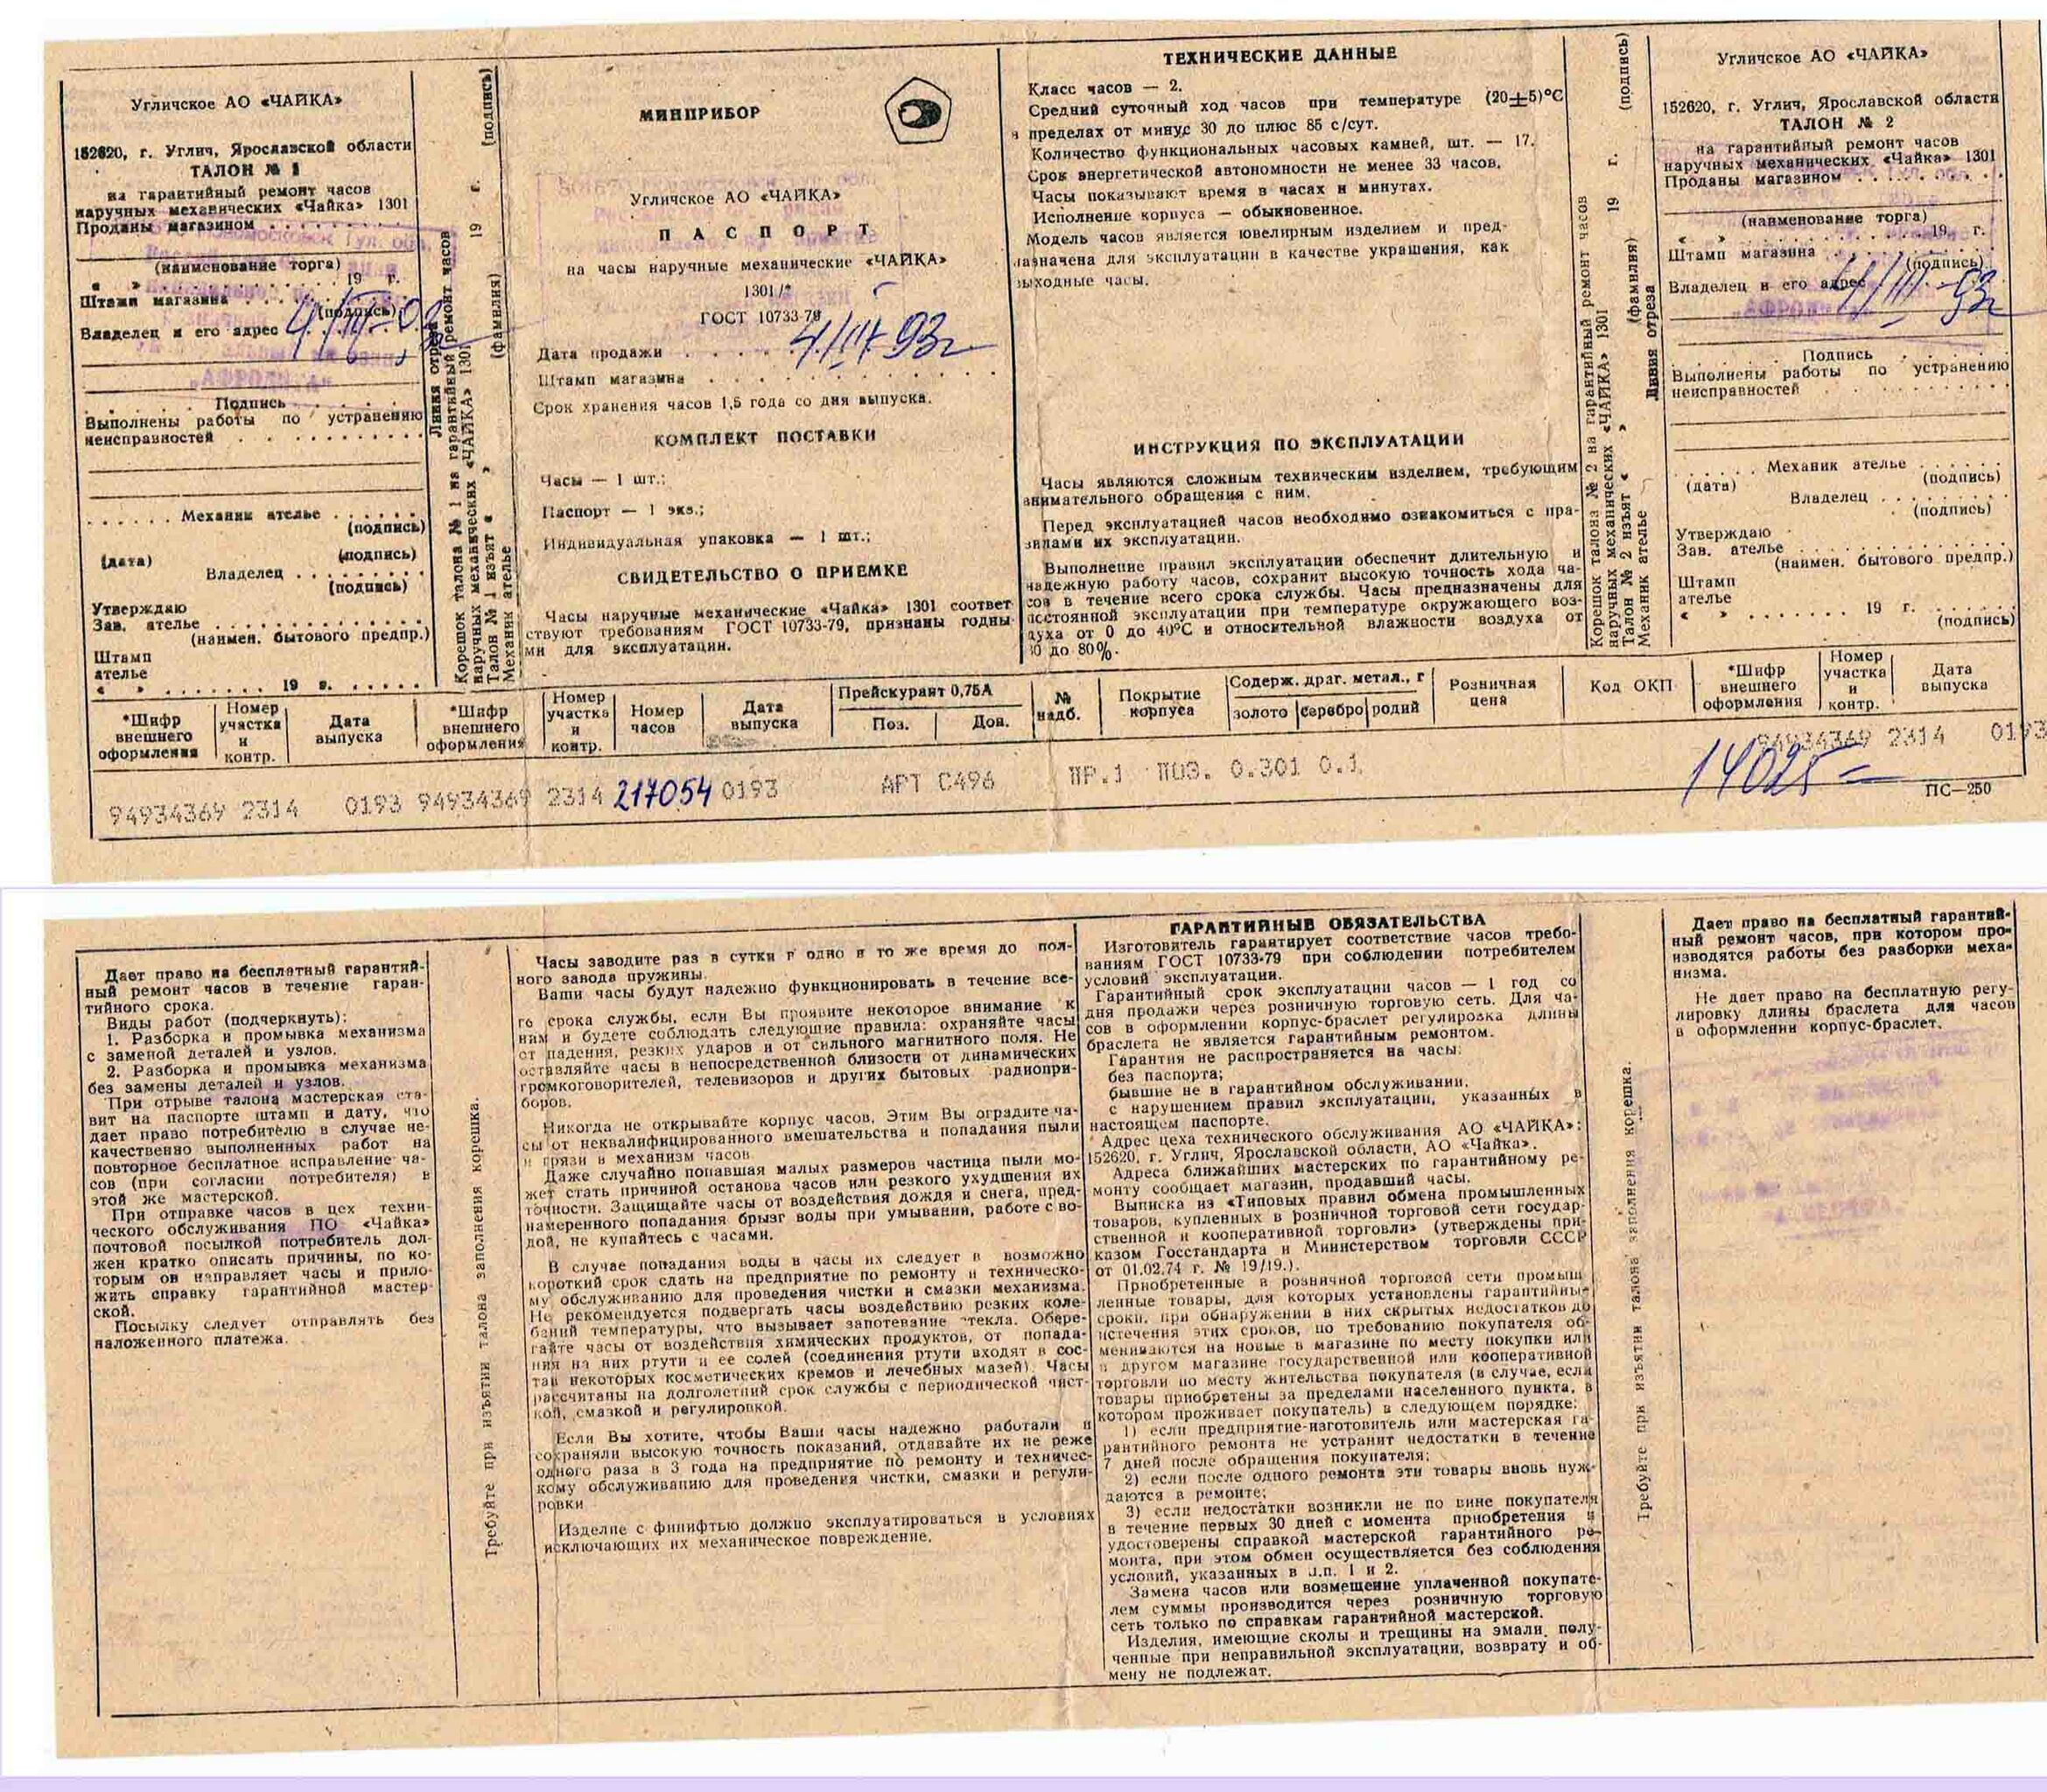 Угличское АО «ЧАЙКА»
152620, г. Углич, Ярославской области
ТАЛОН № 1
на гарантийный ремонт часов
наручных механических «Чайка» 1301
Проданы магазином . . . . . . . .
(наименование торга)
« » . . . . . . . . . . 19 г.
Штамп магазина . . . . .
(подпись)
4/III-93
Владелец и его адрес . . . .
«АФРОДИТА»
Подпись . . . . .
Выполнены работы по устранению
неисправностей . . . . . . . . .
. . . . . . Механик ателье . . . . . .
(подпись)
(дата) (подпись)
Владелец . . . . . . . .
(подпись)
Утверждаю
Зав. ателье . . . . . . . . . . . . .
(наимен. бытового предпр.)
Штамп
ателье
« » . . . . . . . 19 г. . . . . .
Линия отреза
Корешок талона № 1 на гарантийный ремонт часов
наручных механических «ЧАЙКА» 1301
Талон № 1 изъят « » 19 г.
Механик ателье (фамилия) (подпись)
МИНПРИБОР
Угличское АО «ЧАЙКА»
ПАСПОРТ
на часы наручные механические «ЧАЙКА»
1301/*
ГОСТ 10733-79
Дата продажи . . . . . 4/III-93г
Штамп магазина . . . . . . . . . . . . .
Срок хранения часов 1,5 года со дня выпуска.
КОМПЛЕКТ ПОСТАВКИ
Часы — 1 шт.;
Паспорт — 1 экз.;
Индивидуальная упаковка — 1 шт.;
СВИДЕТЕЛЬСТВО О ПРИЕМКЕ
Часы наручные механические «Чайка» 1301 соответ
ствуют требованиям ГОСТ 10733-79, признаны годны
ми для эксплуатации.
ТЕХНИЧЕСКИЕ ДАННЫЕ
Класс часов — 2.
Средний суточный ход часов при температуре (20±5)°С
в пределах от минус 30 до плюс 85 с/сут.
Количество функциональных часовых камней, шт. — 17.
Срок энергетической автономности не менее 33 часов.
Часы показывают время в часах и минутах.
Исполнение корпуса — обыкновенное.
Модель часов является ювелирным изделием и пред-
назначена для эксплуатации в качестве украшения, как
выходные часы.
ИНСТРУКЦИЯ ПО ЭКСПЛУАТАЦИИ
Часы являются сложным техническим изделием, требующим
внимательного обращения с ним.
Перед эксплуатацией часов необходимо ознакомиться с пра-
вилами их эксплуатации.
Выполнение правил эксплуатации обеспечит длительную и
надежную работу часов, сохранит высокую точность хода ча-
сов в течение всего срока службы. Часы предназначены для
постоянной эксплуатации при температуре окружающего воз-
духа от 0 до 40°С и относительной влажности воздуха от
30 до 80%.
Корешок талона № 2 на гарантийный ремонт часов
наручных механических «ЧАЙКА» 1301
Талон № 2 изъят « » 19 г.
Механик ателье (фамилия) (подпись)
Линия отреза
Угличское АО «ЧАЙКА»
152620, г. Углич, Ярославской области
ТАЛОН № 2
на гарантийный ремонт часов
наручных механических «Чайка» 1301
Проданы магазином . . . . . . . .
(наименование торга)
« » . . . . . . . . . . 19 г.
Штамп магазина . . . . .
(подпись)
Владелец и его адрес 4/III-93г
Подпись . . . . .
Выполнены работы по устранению
неисправностей . . . . . . . . .
. . . . . . Механик ателье . . . . . .
(дата) (подпись)
Владелец . . . . . . . .
(подпись)
Утверждаю
Зав. ателье . . . . . . . . . . . . .
(наимен. бытового предпр.)
Штамп
ателье
« » . . . . . . . 19 г. . . . . .
(подпись)
*Шифр внешнего оформления
Номер участка и контр.
Дата выпуска
*Шифр внешнего оформления
Номер участка и контр.
Номер часов
Дата выпуска
Прейскурант 0,75А
Поз. Доп.
№ надб.
Покрытие корпуса
Содерж. драг. метал., г
золото серебро родий
Розничная цена
Код ОКП
*Шифр внешнего оформления
Номер участка и контр.
Дата выпуска
94934369 2314 0193 94934369 2314 217054 0193 АРТ С496 ПР.1 ПОЗ. 0.301 0.1 94934369 2314 0193
14025=
ПС—250
Дает право на бесплатный гарантий-
ный ремонт часов в течение гаран-
тийного срока.
Виды работ (подчеркнуть):
1. Разборка и промывка механизма
с заменой деталей и узлов.
2. Разборка и промывка механизма
без замены деталей и узлов.
При отрыве талона мастерская ста-
вит на паспорте штамп и дату, что
дает право потребителю в случае не-
качественно выполненных работ на
повторное бесплатное исправление ча-
сов (при согласии потребителя) в
этой же мастерской.
При отправке часов в цех техни-
ческого обслуживания ПО «Чайка»
почтовой посылкой потребитель дол-
жен кратко описать причины, по ко-
торым он направляет часы и прило-
жить справку гарантийной мастер-
ской.
Посылку следует отправлять без
наложенного платежа.
Требуйте при изъятии талона заполнения корешка.
Часы заводите раз в сутки в одно и то же время до пол-
ного завода пружины.
Ваши часы будут надежно функционировать в течение все-
го срока службы, если Вы проявите некоторое внимание к
ним и будете соблюдать следующие правила: охраняйте часы
от падения, резких ударов и от сильного магнитного поля. Не
оставляйте часы в непосредственной близости от динамических
громкоговорителей, телевизоров и других бытовых радиопри-
боров.
Никогда не открывайте корпус часов. Этим Вы оградите ча-
сы от неквалифицированного вмешательства и попадания пыли
и грязи в механизм часов.
Даже случайно попавшая малых размеров частица пыли мо-
жет стать причиной останова часов или резкого ухудшения их
точности. Защищайте часы от воздействия дождя и снега, пред-
намеренного попадания брызг воды при умывании, работе с во-
дой, не купайтесь с часами.
В случае попадания воды в часы их следует в возможно
короткий срок сдать на предприятие по ремонту и техническо-
му обслуживанию для проведения чистки и смазки механизма.
Не рекомендуется подвергать часы воздействию резких коле-
баний температуры, что вызывает запотевание стекла. Обере-
гайте часы от воздействия химических продуктов, от попада-
ния на них ртути и ее солей (соединения ртути входят в сос-
тав некоторых косметических кремов и лечебных мазей). Часы
рассчитаны на долголетний срок службы с периодической чист-
кой, смазкой и регулировкой.
Если Вы хотите, чтобы Ваши часы надежно работали и
сохраняли высокую точность показаний, отдавайте их не реже
одного раза в 3 года на предприятие по ремонту и техничес-
кому обслуживанию для проведения чистки, смазки и регули-
ровки
Изделие с финифтью должно эксплуатироваться в условиях
исключающих их механическое повреждение.
ГАРАНТИЙНЫЕ ОБЯЗАТЕЛЬСТВА
Изготовитель гарантирует соответствие часов требо-
ваниям ГОСТ 10733-79 при соблюдении потребителем
условий эксплуатации.
Гарантийный срок эксплуатации часов — 1 год со
дня продажи через розничную торговую сеть. Для ча-
сов в оформлении корпус-браслет регулировка длины
браслета не является гарантийным ремонтом.
Гарантия не распространяется на часы:
без паспорта;
бывшие не в гарантийном обслуживании,
с нарушением правил эксплуатации, указанных в
настоящем паспорте.
Адрес цеха технического обслуживания АО «ЧАЙКА»:
152620, г. Углич, Ярославской области, АО «Чайка».
Адреса ближайших мастерских по гарантийному ре-
монту сообщает магазин, продавший часы.
Выписка из «Типовых правил обмена промышленных
товаров, купленных в розничной торговой сети государ-
ственной и кооперативной торговли» (утверждены при-
казом Госстандарта и Министерством торговли СССР
от 01.02.74 г. № 19/19.).
Приобретенные в розничной торговой сети промыш
ленные товары, для которых установлены гарантийные
сроки, при обнаружении в них скрытых недостатков до
истечения этих сроков, по требованию покупателя об-
мениваются на новые в магазине по месту покупки или
в другом магазине государственной или кооперативной
торговли по месту жительства покупателя (в случае, если
товары приобретены за пределами населенного пункта, в
котором проживает покупатель) в следующем порядке:
1) если предприятие-изготовитель или мастерская га-
рантийного ремонта не устранит недостатки в течение
7 дней после обращения покупателя;
2) если после одного ремонта эти товары вновь нуж-
даются в ремонте;
3) если недостатки возникли не по вине покупателя
в течение первых 30 дней с момента приобретения и
удостоверены справкой мастерской гарантийного ре-
монта, при этом обмен осуществляется без соблюдения
условий, указанных в п.п. 1 и 2.
Замена часов или возмещение уплаченной покупате-
лем суммы производится через розничную торговую
сеть только по справкам гарантийной мастерской.
Изделия, имеющие сколы и трещины на эмали, полу-
ченные при неправильной эксплуатации, возврату и об-
мену не подлежат.
Требуйте при изъятии талона заполнения корешка.
Дает право на бесплатный гарантий-
ный ремонт часов, при котором про-
изводятся работы без разборки меха-
низма.
Не дает право на бесплатную регу-
лировку длины браслета для часов
в оформлении корпус-браслет.